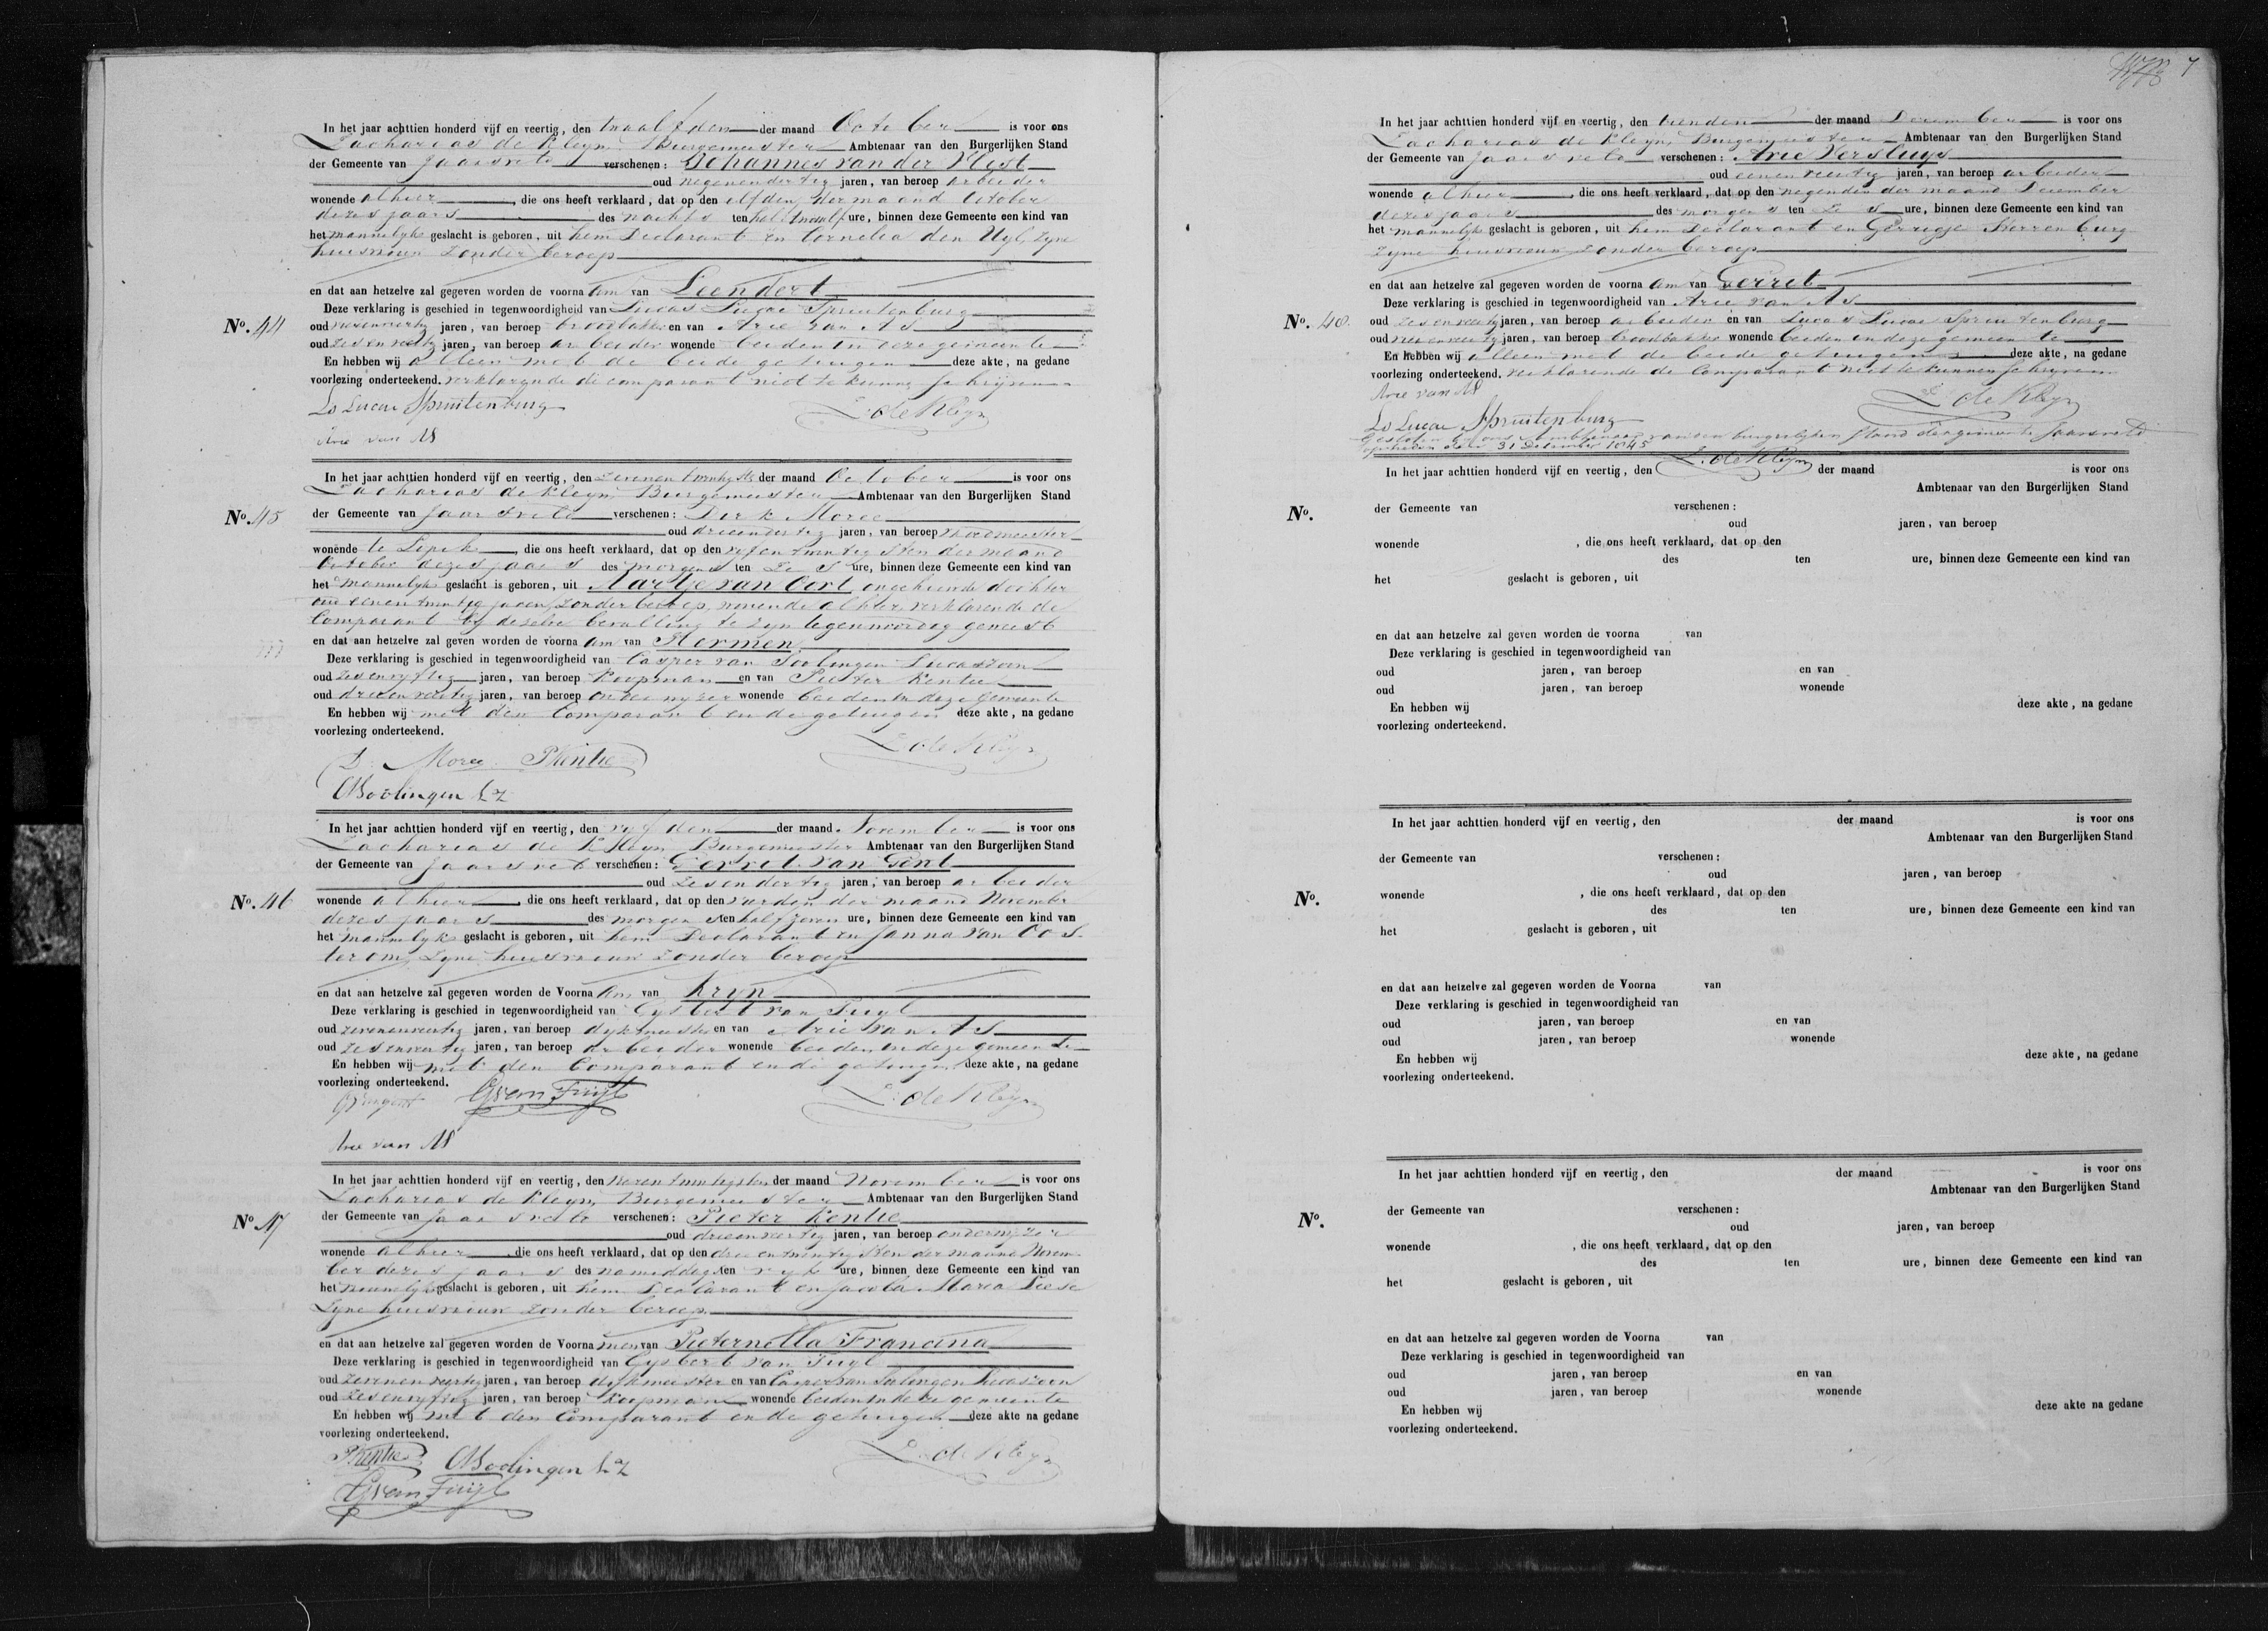 In het jaar achttien honderd vijf en veertig, den twaalfden der maand October is voor ons
Zacharias de Kleyn Burgemeester Ambtenaar van den Burgerlijken Stand
der Gemeente van Jaarsveld verschenen: Johannes van der Vlist
oud negenendertig jaren, van beroep arbeider
wonende alhier, die ons heeft verklaard, dat op den elfden der maand October
dezes jaars des nachts ten half twaalf ure, binnen deze Gemeente een kind van
het mannelyk geslacht is geboren, uit hem Declarant en Cornelia den Uyl, zyne
huisvrouw zonder beroep
en dat aan hetzelve zal gegeven worden de voorna am van Leendert
Deze verklaring is geschied in tegenwoordigheid van Lucas Lucae Spruitenburg
No. 44
oud jaren, van beroep broodbakker en van Arie van As
oud zesenveertig jaren, van beroep arbeider wonende beiden in deze gemeente
En hebben wij alleen met de beide getuigen deze akte, na gedane
voorlezing onderteekend. verklarende de comparant niet te kunnen schryven
Ls Lucae Spruitenburg Z. de Kleyn
Arie van As
In het jaar achttien honderd vijf en veertig, den zevenentwintigste der maand October is voor ons
Zacharias de Kleyn Burgemeester Ambtenaar van den Burgerlijken Stand
No. 45
der Gemeente van Jaarsveld verschenen: Dirk Moree
oud drieendertig jaren, van beroep vroedmeester
wonende te Lopik, die ons heeft verklaard, dat op den vyfentwintigsten der maand
October dezes jaars des morgens ten zes ure, binnen deze Gemeente een kind van
het mannelyk geslacht is geboren, uit Aartje van Oort ongehuwde dochter
oud eenentwintig jaren, zonder beroep, wonende alhier, verklarende de
Comparant by dezelve bevalling te zyn tegenwoordig geweest
en dat aan hetzelve zal geven worden de voorna am van Hermen
Deze verklaring is geschied in tegenwoordigheid van Casper van Soolingen Lucaszoon
oud zesenvyftig jaren, van beroep koopman en van Pieter Kentie
oud drieenveertig jaren, van beroep onderwyzer wonende beiden in deze Gemeente
En hebben wij met den Comparant en de getuigen deze akte, na gedane
voorlezing onderteekend.
D. Moree PKentie Z. de Kleyn
CVSoolingen Lz
In het jaar achttien honderd vijf en veertig, den vyfden der maand November is voor ons
Zacharias de Kleyn Burgemeester Ambtenaar van den Burgerlijken Stand
der Gemeente van Jaarsveld verschenen: Gerrit van Gent
oud zesendertig jaren, van beroep arbeider
No. 46
wonende alhier, die ons heeft verklaard, dat op den vierden der maand November
dezes jaars des morgens ten half zeven ure, binnen deze Gemeente een kind van
het mannelyk geslacht is geboren, uit hem Declarant en Janna van Oos-
terom, zyne huisvrouw zonder beroep
en dat aan hetzelve zal gegeven worden de Voorna am van Kryn
Deze verklaring is geschied in tegenwoordigheid van Gysbert van Tuyl
oud zevenenveertig jaren, van beroep dykmeester en van Arie van As
oud zesenveertig jaren, van beroep arbeider wonende beiden in deze gemeente
En hebben wij met den Comparant en de getuigen deze akte, na gedane
voorlezing onderteekend.
GVangent GvanTuijl Z. de Kleyn
Arie van As
In het jaar achttien honderd vijf en veertig, den vierentwintigsten der maand November is voor ons
Zacharias de Kleyn Burgemeester Ambtenaar van den Burgerlijken Stand
No. 47
der Gemeente van Jaarsveld verschenen: Pieter Kentie
oud drieenveertig jaren, van beroep onderwyzer
wonende alhier, die ons heeft verklaard, dat op den drieentwintigsten der maand Novem-
ber dezes jaars des namiddags ten vyf ure, binnen deze Gemeente een kind van
het vrouwelyk geslacht is geboren, uit hem Declarant en Jacoba Maria
Zyne huisvrouw zonder beroep
en dat aan hetzelve zal gegeven worden de Voorna men van Pieternella Francina
Deze verklaring is geschied in tegenwoordigheid van Gysbert van Tuyl
oud zevenenveertig jaren, van beroep dykmeester en van Casper van Solingen Lucaszoon
oud zesenvyftig jaren, van beroep koopman wonende beiden in deze gemeente
En hebben wij met den Comparant en de getuigen deze akte na gedane
voorlezing onderteekend.
PKentie CVSoolingen Lz Z. de Kleyn
GvanTuijl
7
In het jaar achttien honderd vijf en veertig, den tienden der maand December is voor ons
Zacharias de Kleyn, Burgemeester Ambtenaar van den Burgerlijken Stand
der Gemeente van Jaarsveld verschenen: Arie Versluys
oud eenenveertig jaren, van beroep arbeider
wonende alhier, die ons heeft verklaard, dat op den negenden der maand December
dezes jaars des morgens ten zes ure, binnen deze Gemeente een kind van
het mannelyk geslacht is geboren, uit hem Declarant en Gerrigje Kerrenburg
zyne huisvrouw zonder beroep
en dat aan hetzelve zal gegeven worden de voorna am van Gerrit
Deze verklaring is geschied in tegenwoordigheid van Arie van As
No. 48.
oud zesenveertig jaren, van beroep arbeider en van Lucas Lucae Spruitenburg
oud jaren, van beroep broodbakker wonende beiden in deze gemeente
En hebben wij alleen met de beide getuigen deze akte, na gedane
voorlezing onderteekend. verklarende de Comparant niet te kunnen schryven
Arie van As Z. de Kleyn
Ls Lucae Spruitenburg
Gesloten by ons Ambtenaar van den burgerlyken stand der gemeente Jaarsveld
op heden den 31 December 1845
Z. de Kleyn
In het jaar achttien honderd vijf en veertig, den der maand is voor ons
Ambtenaar van den Burgerlijken Stand
der Gemeente van verschenen:
No.
oud jaren, van beroep
wonende , die ons heeft verklaard, dat op den
des ten ure, binnen deze Gemeente een kind van
het geslacht is geboren, uit
en dat aan hetzelve zal geven worden de voorna van
Deze verklaring is geschied in tegenwoordigheid van
oud jaren, van beroep en van
oud jaren, van beroep wonende
En hebben wij deze akte, na gedane
voorlezing onderteekend.
In het jaar achttien honderd vijf en veertig, den der maand is voor ons
Ambtenaar van den Burgerlijken Stand
der Gemeente van verschenen:
oud jaren, van beroep
No.
wonende , die ons heeft verklaard, dat op den
des ten ure, binnen deze Gemeente een kind van
het geslacht is geboren, uit
en dat aan hetzelve zal gegeven worden de Voorna van
Deze verklaring is geschied in tegenwoordigheid van
oud jaren, van beroep en van
oud jaren, van beroep wonende
En hebben wij deze akte, na gedane
voorlezing onderteekend.
In het jaar achttien honderd vijf en veertig, den der maand is voor ons
Ambtenaar van den Burgerlijken Stand
der Gemeente van verschenen:
No.
oud jaren, van beroep
wonende , die ons heeft verklaard, dat op den
des ten ure, binnen deze Gemeente een kind van
het geslacht is geboren, uit
en dat aan hetzelve zal gegeven worden de Voorna van
Deze verklaring is geschied in tegenwoordigheid van
oud jaren, van beroep en van
oud jaren, van beroep wonende
En hebben wij deze akte na gedane
voorlezing onderteekend.